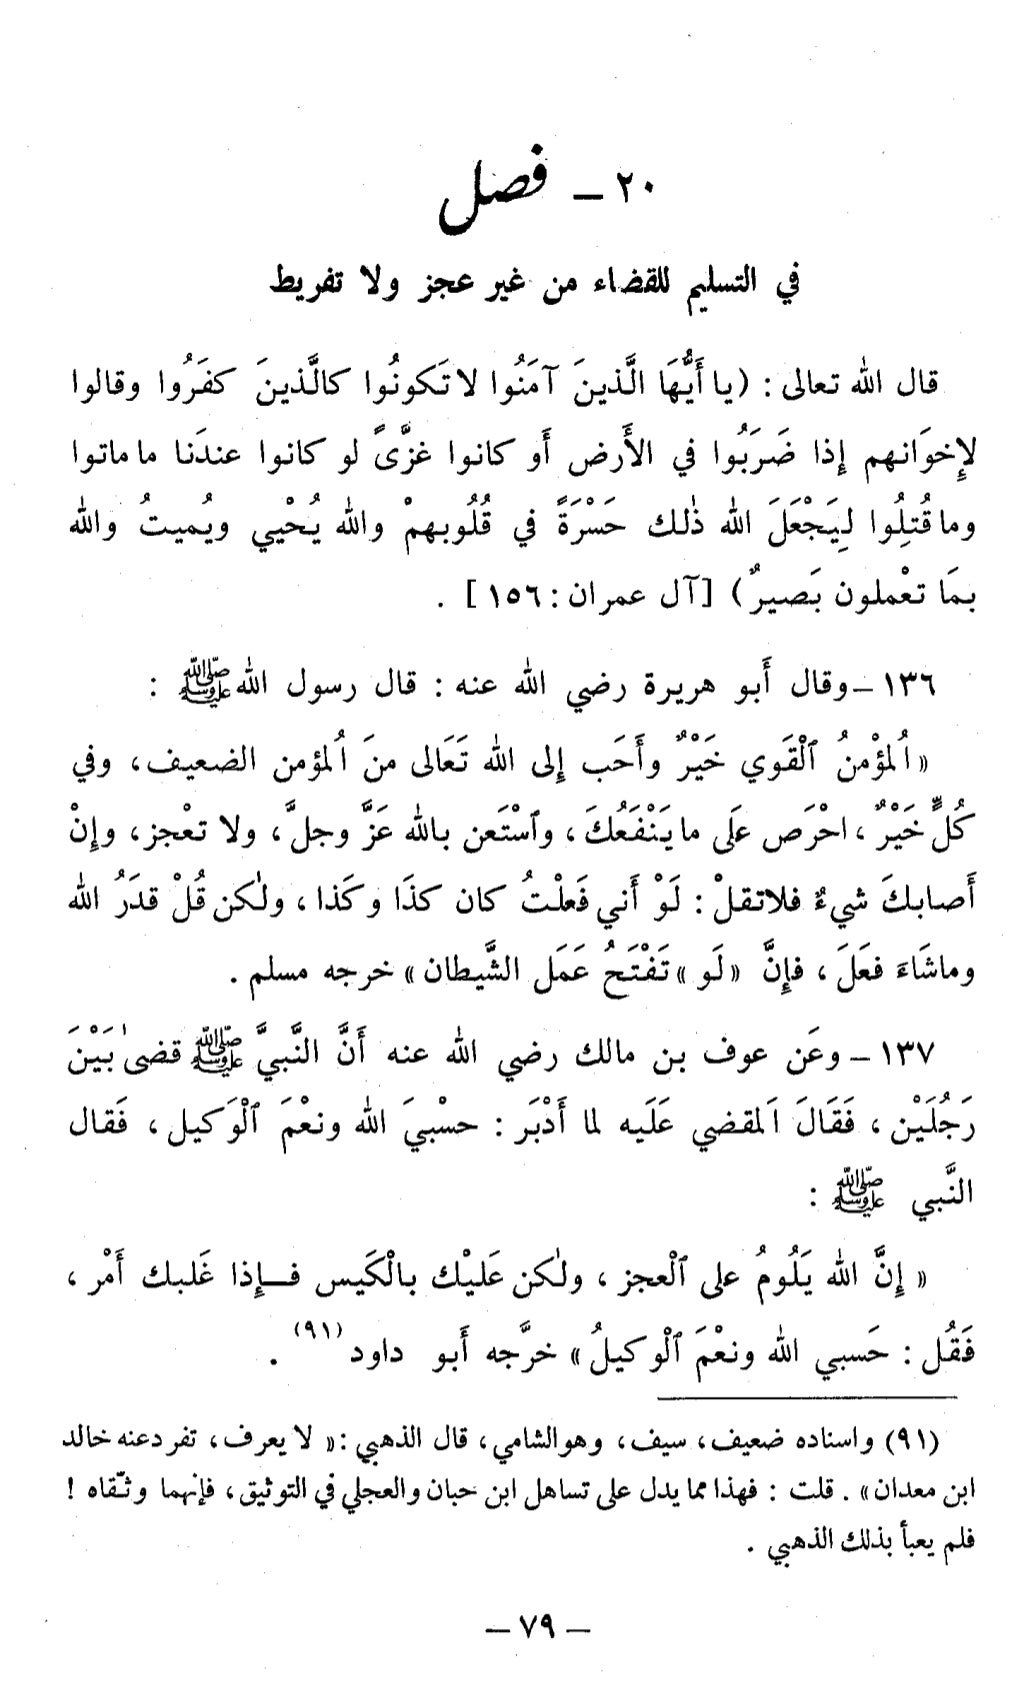 ٢٠ - فصل
في التسليم للقضاء من غير عجز ولا تفريط
قال الله تعالى : (يا أَيُّهَا الَّذينَ آمَنُوا لا تَكونُوا كالَّذينَ كفَرُوا وقالوا
لإِخوَانهم إِذا ضَرَبُوا في الأَرض أَو كانوا غزَّىً لو كانوا عندَنا ما ماتوا
وما قُتِلُوا لِيَجْعَلَ الله ذٰلك حَسْرَةً في قُلُوبهمْ والله يُحْيي ويُميتُ والله
بمَا تعْملون بَصيرٌ) [آل عمران : ١٥٦] .
١٣٦ - وقال أَبو هريرة رضي الله عنه : قال رسول الله ﷺ :
« اُلمؤْمنُ ٱلْقَوي خَيْرٌ وأَحَب إِلى الله تَعَالى منَ اُلمؤمن الضعيف ، وفي
كُلٍّ خَيْرٌ ، احْرَص عَلَى ما يَنْفَعُكَ ، وٱسْتَعن بالله عَزَّ وجلَّ ، ولا تعْجز ، وإِنْ
أَصابكَ شيءٌ فلا تقلْ : لَوْ أَني فَعلْتُ كان كذَا وكَذا ، ولٰكن قُلْ قدَرُ الله
وما شَاءَ فعَلَ ، فإِنَّ « لَو » تَفْتَحُ عَمَل الشَّيطان » خرجه مسلم .
١٣٧ - وعَن عوف بن مالك رضي الله عنه أَنَّ النَّبيَّ ﷺ قضىٰ بَيْنَ
رَجُلَيْن ، فَقَالَ اَلمقضي عَلَيه لما أَدْبَر : حسْبيَ الله ونعْمَ ٱلْوَكيل ، فَقال
النَّبي ﷺ :
« إِنَّ الله يَلُومُ على ٱلْعجز ، ولٰكن عَليْك بالْكَيس فـإِذا غَلبك أَمْر ،
فَقُل : حَسبي الله ونعْمَ ٱلْوكيلُ » خرَّجه أَبو داود (٩١) .
(٩١) واسناده ضعيف ، سيف ، وهو الشامي ، قال الذهبي : « لا يعرف ، تفرد عنه خالد
ابن معدان » . قلت : فهذا مما يدل على تساهل ابن حبان والعجلي في التوثيق ، فإنهما وثّقاه !
فلم يعبأ بذلك الذهبي .
- ٧٩ -